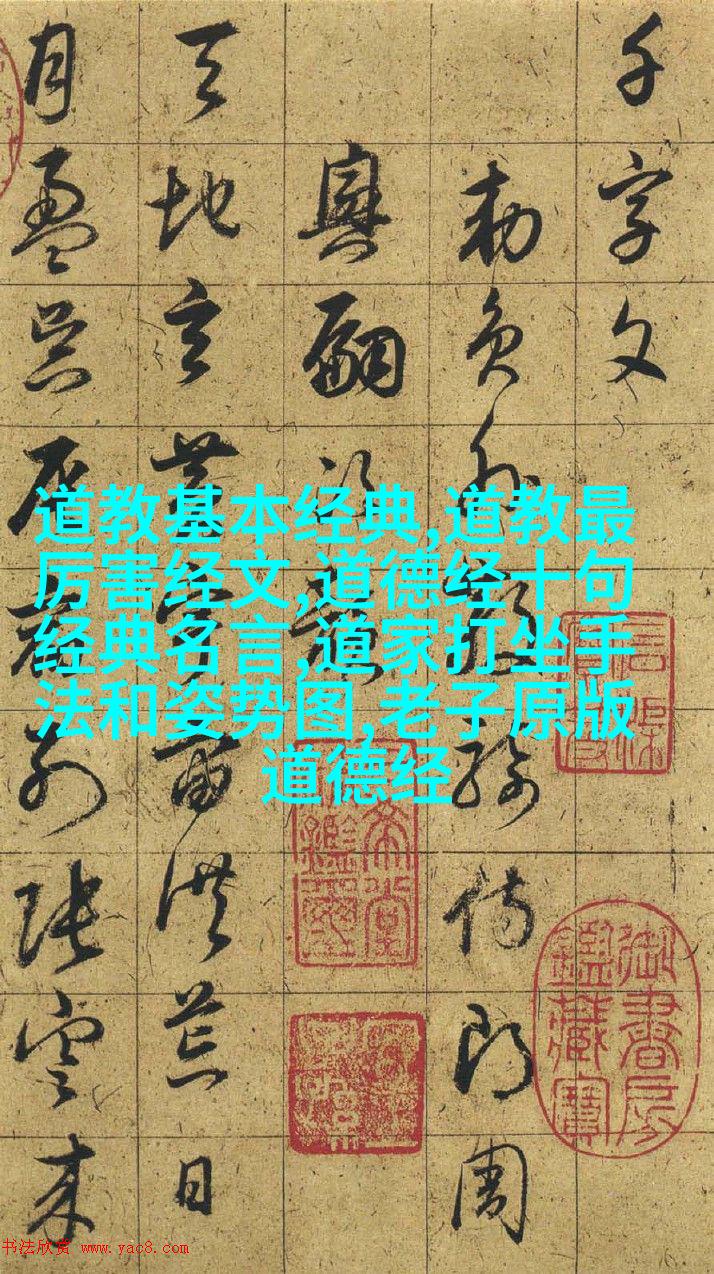 千字文
勅員外散騎侍郎周
興嗣次韻
天地玄黄宇宙洪荒日
月盈昃辰宿列張寒来
道教基本经典,道教最
厉害经文,道德经十句
经典名言,道家打坐手
法和姿势图,老子原版
道德经
御書房
鑑藏寶
书法欣赏 www.yac8.com